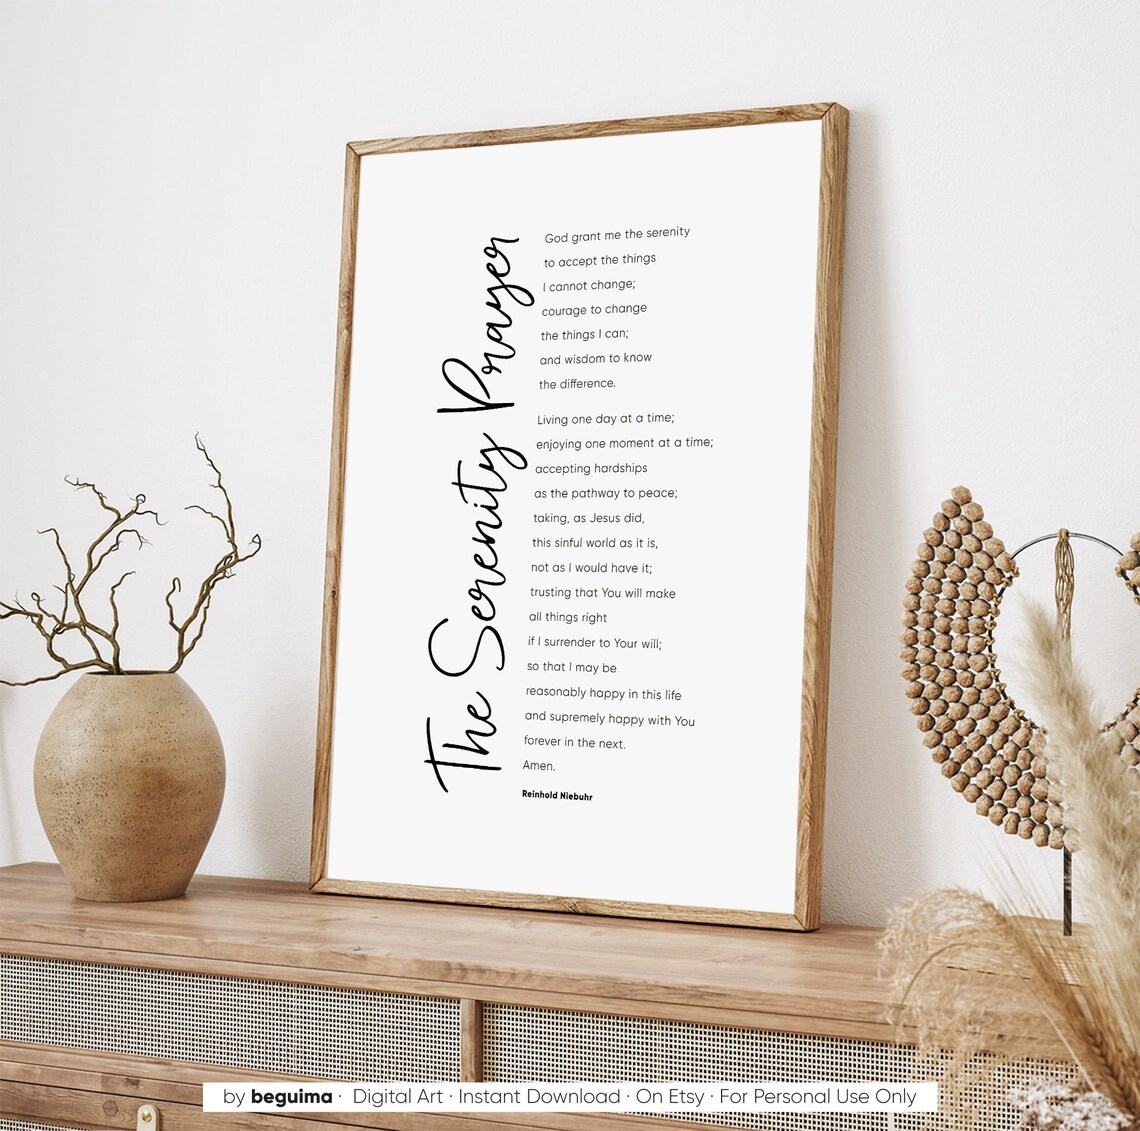 The Serenity Prayer
God grant me the serenity
to accept the things
I cannot change;
courage to change
the things I can;
and wisdom to know
the difference.
Living one day at a time;
enjoying one moment at a time;
accepting hardships
as the pathway to peace;
taking, as Jesus did,
this sinful world as it is,
not as I would have it;
trusting that You will make
all things right
if I surrender to Your will;
so that I may be
reasonably happy in this life
and supremely happy with You
forever in the next.
Amen.
Reinhold Niebuhr
by beguima · Digital Art · Instant Download · On Etsy · For Personal Use Only